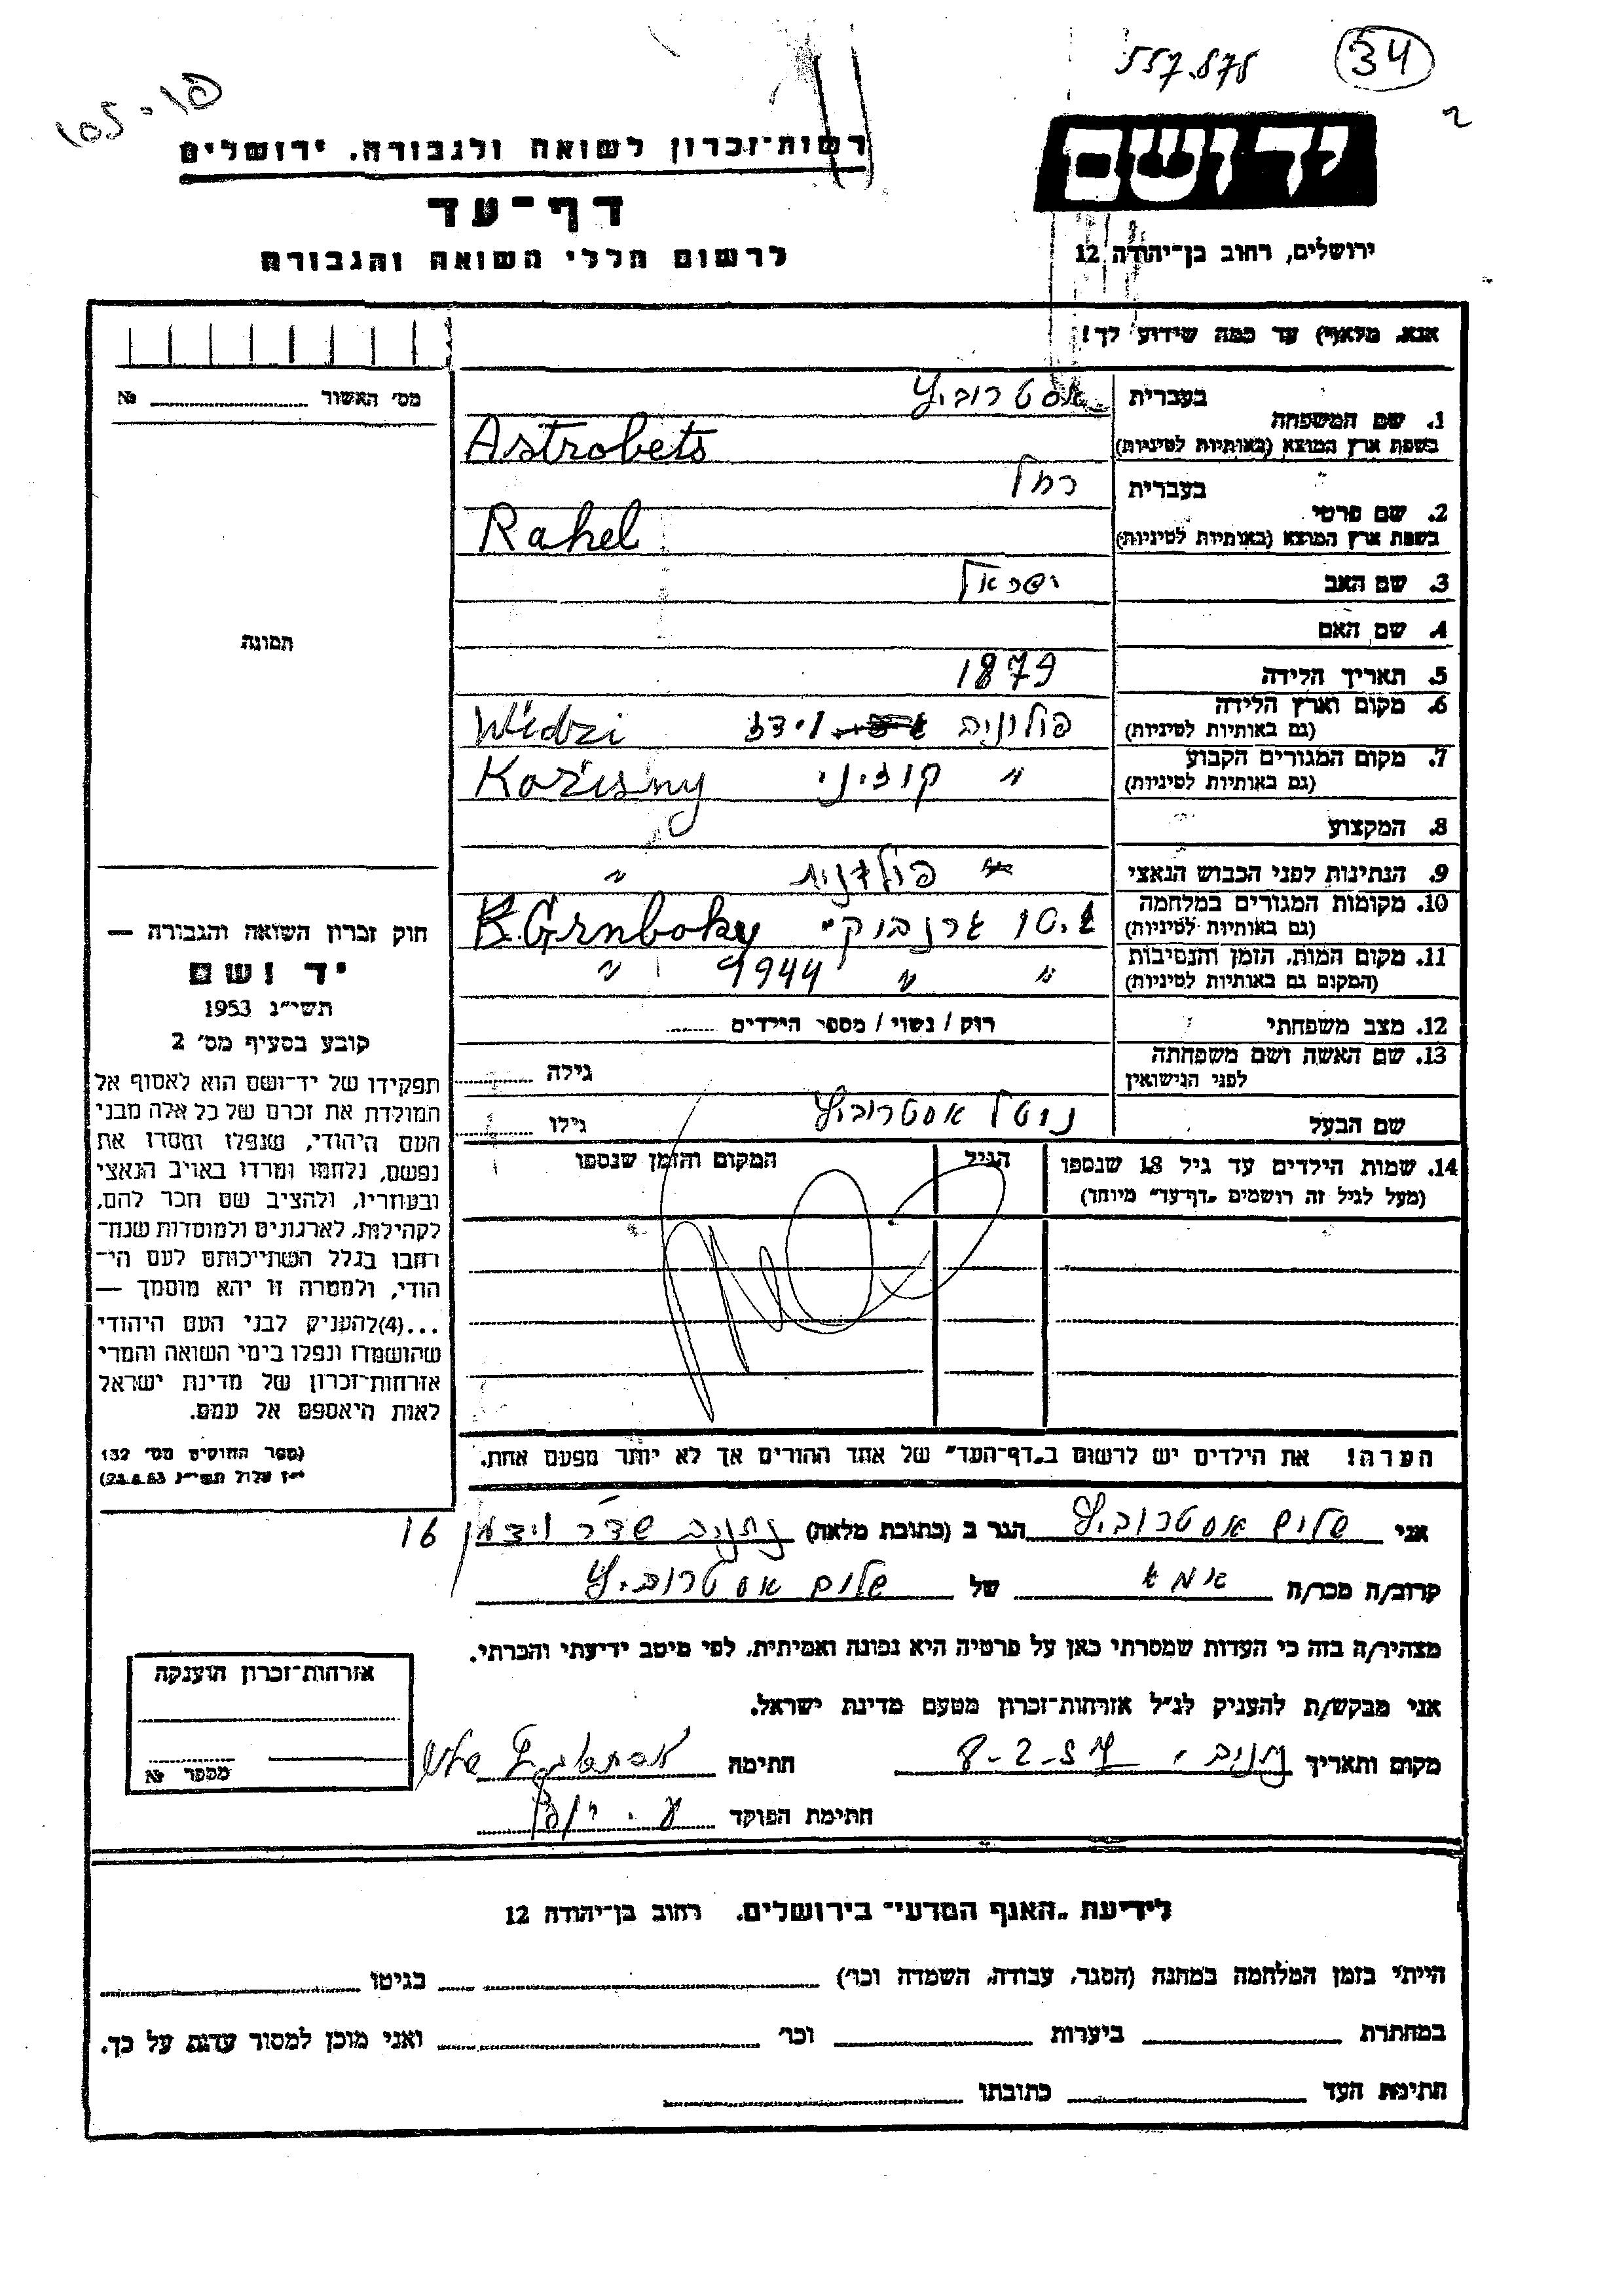 557.878
34
105-10
רשות־זכרון לשואה ולגבורה. ירושלים
יד ושם
דף־עד
לרשום חללי השואה והגבורה
ירושלים, רחוב בן־יהודה 12
אנא, מלא(י) עד כמה שידוע לך!
מס׳ האשור № 
בעברית אסטרוביץ
1. שם המשפחה
בשפת ארץ המוצא (באותיות לטיניות) Astrobets
בעברית רחל
2. שם פרטי
בשפת ארץ המוצא (באותיות לטיניות) Rahel
3. שם האב ישראל
4. שם האם
תמונה
5. תאריך הלידה 1879
6. מקום וארץ הלידה פולניה וידז Widzi
(גם באותיות לטיניות)
7. מקום המגורים הקבוע " קוזיני
(גם באותיות לטיניות)
8. המקצוע
9. הנתינות לפני הכבוש הנאצי פולנית "
10. מקומות המגורים במלחמה
(גם באותיות לטיניות)
11. מקום המות, הזמן והנסיבות " " 1944 "
(המקום גם באותיות לטיניות)
12. מצב משפחתי רוק / נשוי / מספר הילדים
13. שם האשה ושם משפחתה
לפני הנישואין גילה
שם הבעל נוטל אסטרוביץ גילו
14. שמות הילדים עד גיל 18 שנספו הגיל המקום והזמן שנספו
(מעל לגיל זה רושמים „דף־עד” מיוחד)
חוק זכרון השואה והגבורה —
יד ושם
תשי״ג 1953
קובע בסעיף מס׳ 2
תפקידו של יד־ושם הוא לאסוף אל
המולדת את זכרם של כל אלה מבני
העם היהודי, שנפלו ומסרו את
נפשם, נלחמו ומרדו באויב הנאצי
ובעוזריו, ולהציב שם וזכר להם,
לקהילות, לארגונים ולמוסדות שנח־
רבו בגלל השתייכותם לעם הי־
הודי, ולמטרה זו יהא מוסמך —
...(4)להעניק לבני העם היהודי
שהושמדו ונפלו בימי השואה והמרי
אזרחות־זכרון של מדינת ישראל
לאות היאספם אל עמם.
(ספר החוקים מס׳ 132
י״ז אלול תשי״ג 28.8.53)
הערה! את הילדים יש לרשום ב„דף־העד” של אחד ההורים אך לא יותר מפעם אחת.
אני שלום אסטרוביץ הגר ב (כתובת מלאה) נתניה שדר׳ ויצמן 16
קרוב/ה מכר/ה אמא של שלום אסטרוביץ
מצהיר/ה בזה כי העדות שמסרתי כאן על פרטיה היא נכונה ואמיתית, לפי מיטב ידיעתי והכרתי.
אני מבקש/ת להעניק לנ״ל אזרחות־זכרון מטעם מדינת ישראל.
מקום ותאריך נתניה, 8-2-57 חתימה
חתימת הפוקד
אזרחות־זכרון הוענקה
מספר №
לידיעת „האגף המדעי” בירושלים. רחוב בן־יהודה 12
הייתי בזמן המלחמה במחנה (הסגר, עבודה, השמדה וכו׳) בגיטו
במחתרת ביערות וכו׳ ואני מוכן למסור עדות על כך.
חתימת העד כתובתו